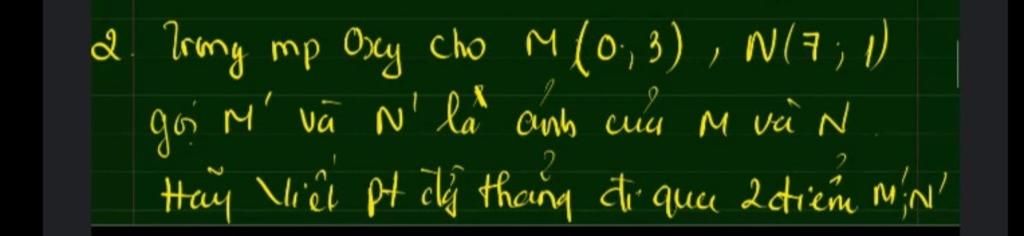 2. Trong mp Oxy cho M(0;3), N(7;1)
gọi M' và N' là ảnh của M và N.
Hãy Viết pt đg thẳng đi qua 2 điểm M';N'